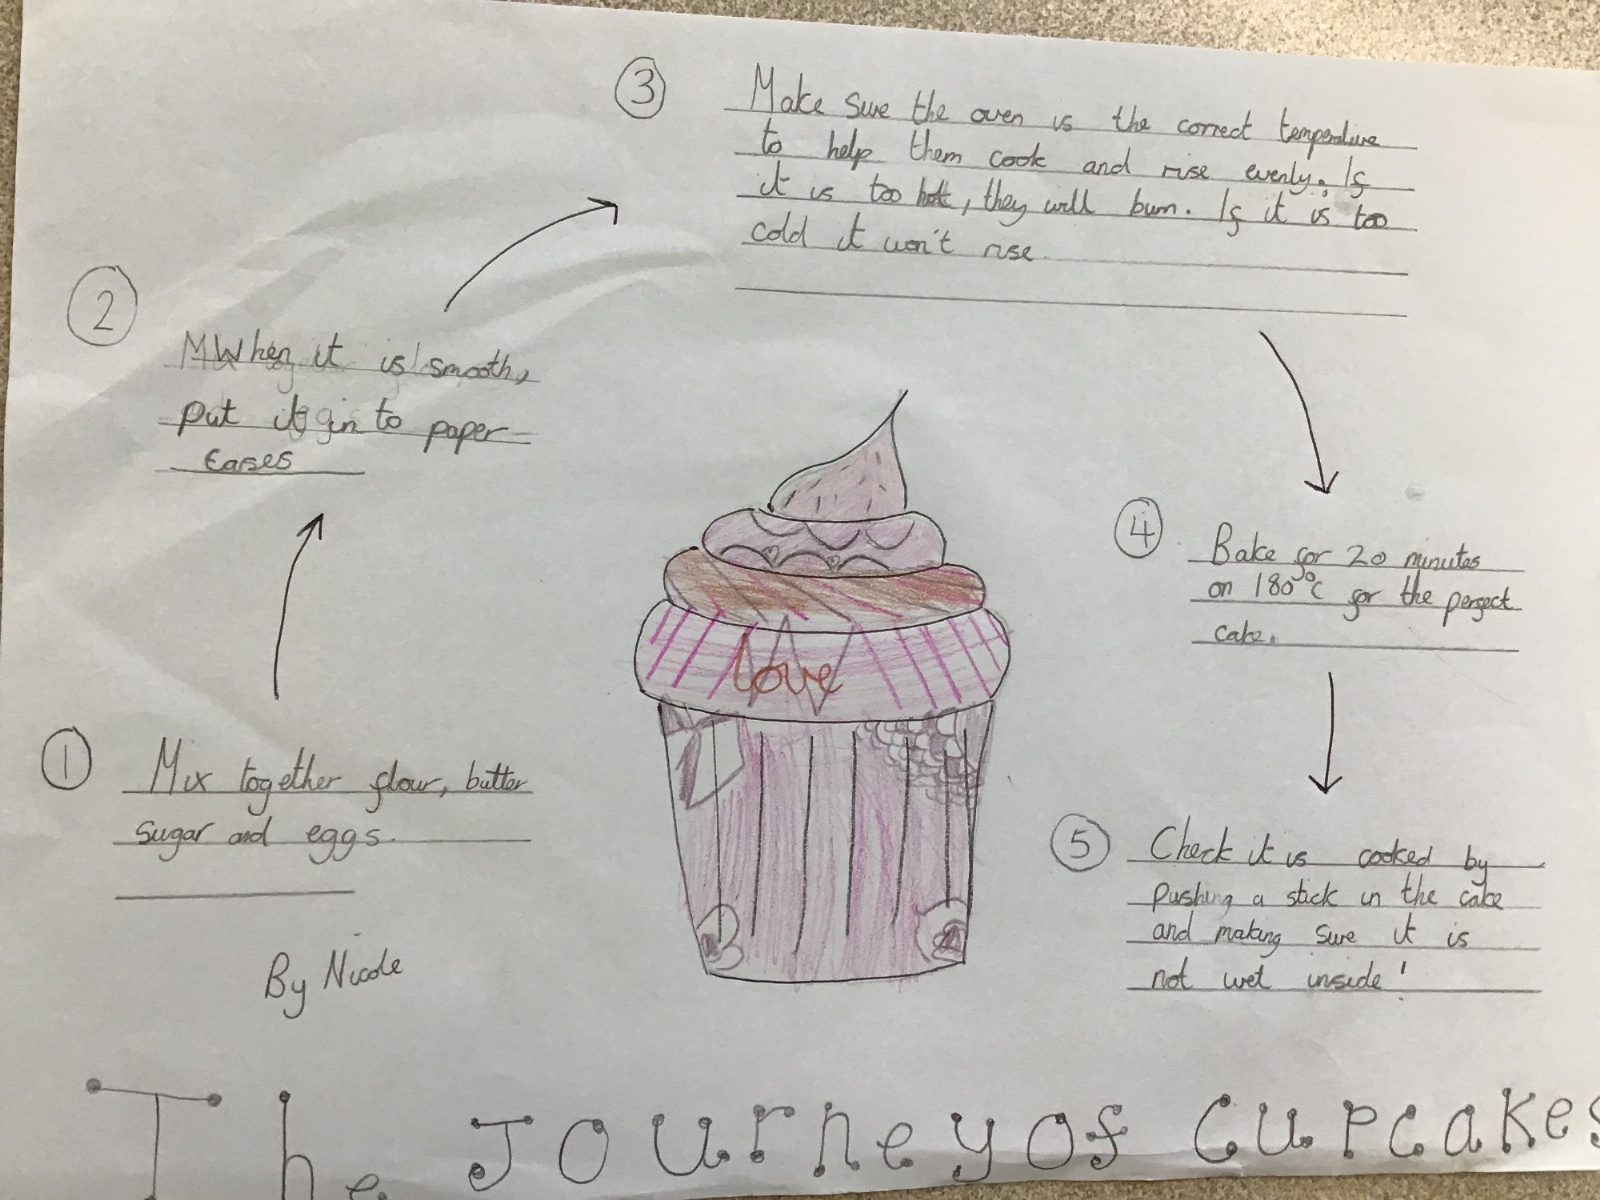 1
Mix together flour, butter
sugar and eggs.
2
When it is smooth,
put it in to paper
cases
3
Make sure the oven is the correct temperature
to help them cook and rise evenly. If
it is too hot, they will burn. If it is too
cold it won't rise.
4
Bake for 20 minutes
on 180°c for the perfect
cake.
5
Check it is cooked by
pushing a stick in the cake
and making sure it is
not wet inside!
Love
By Nicole
The Journey of cupcakes